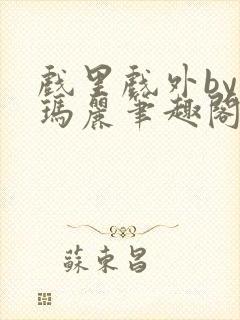 戲里戲外by
瑪麗筆趣閣
蘇東昌